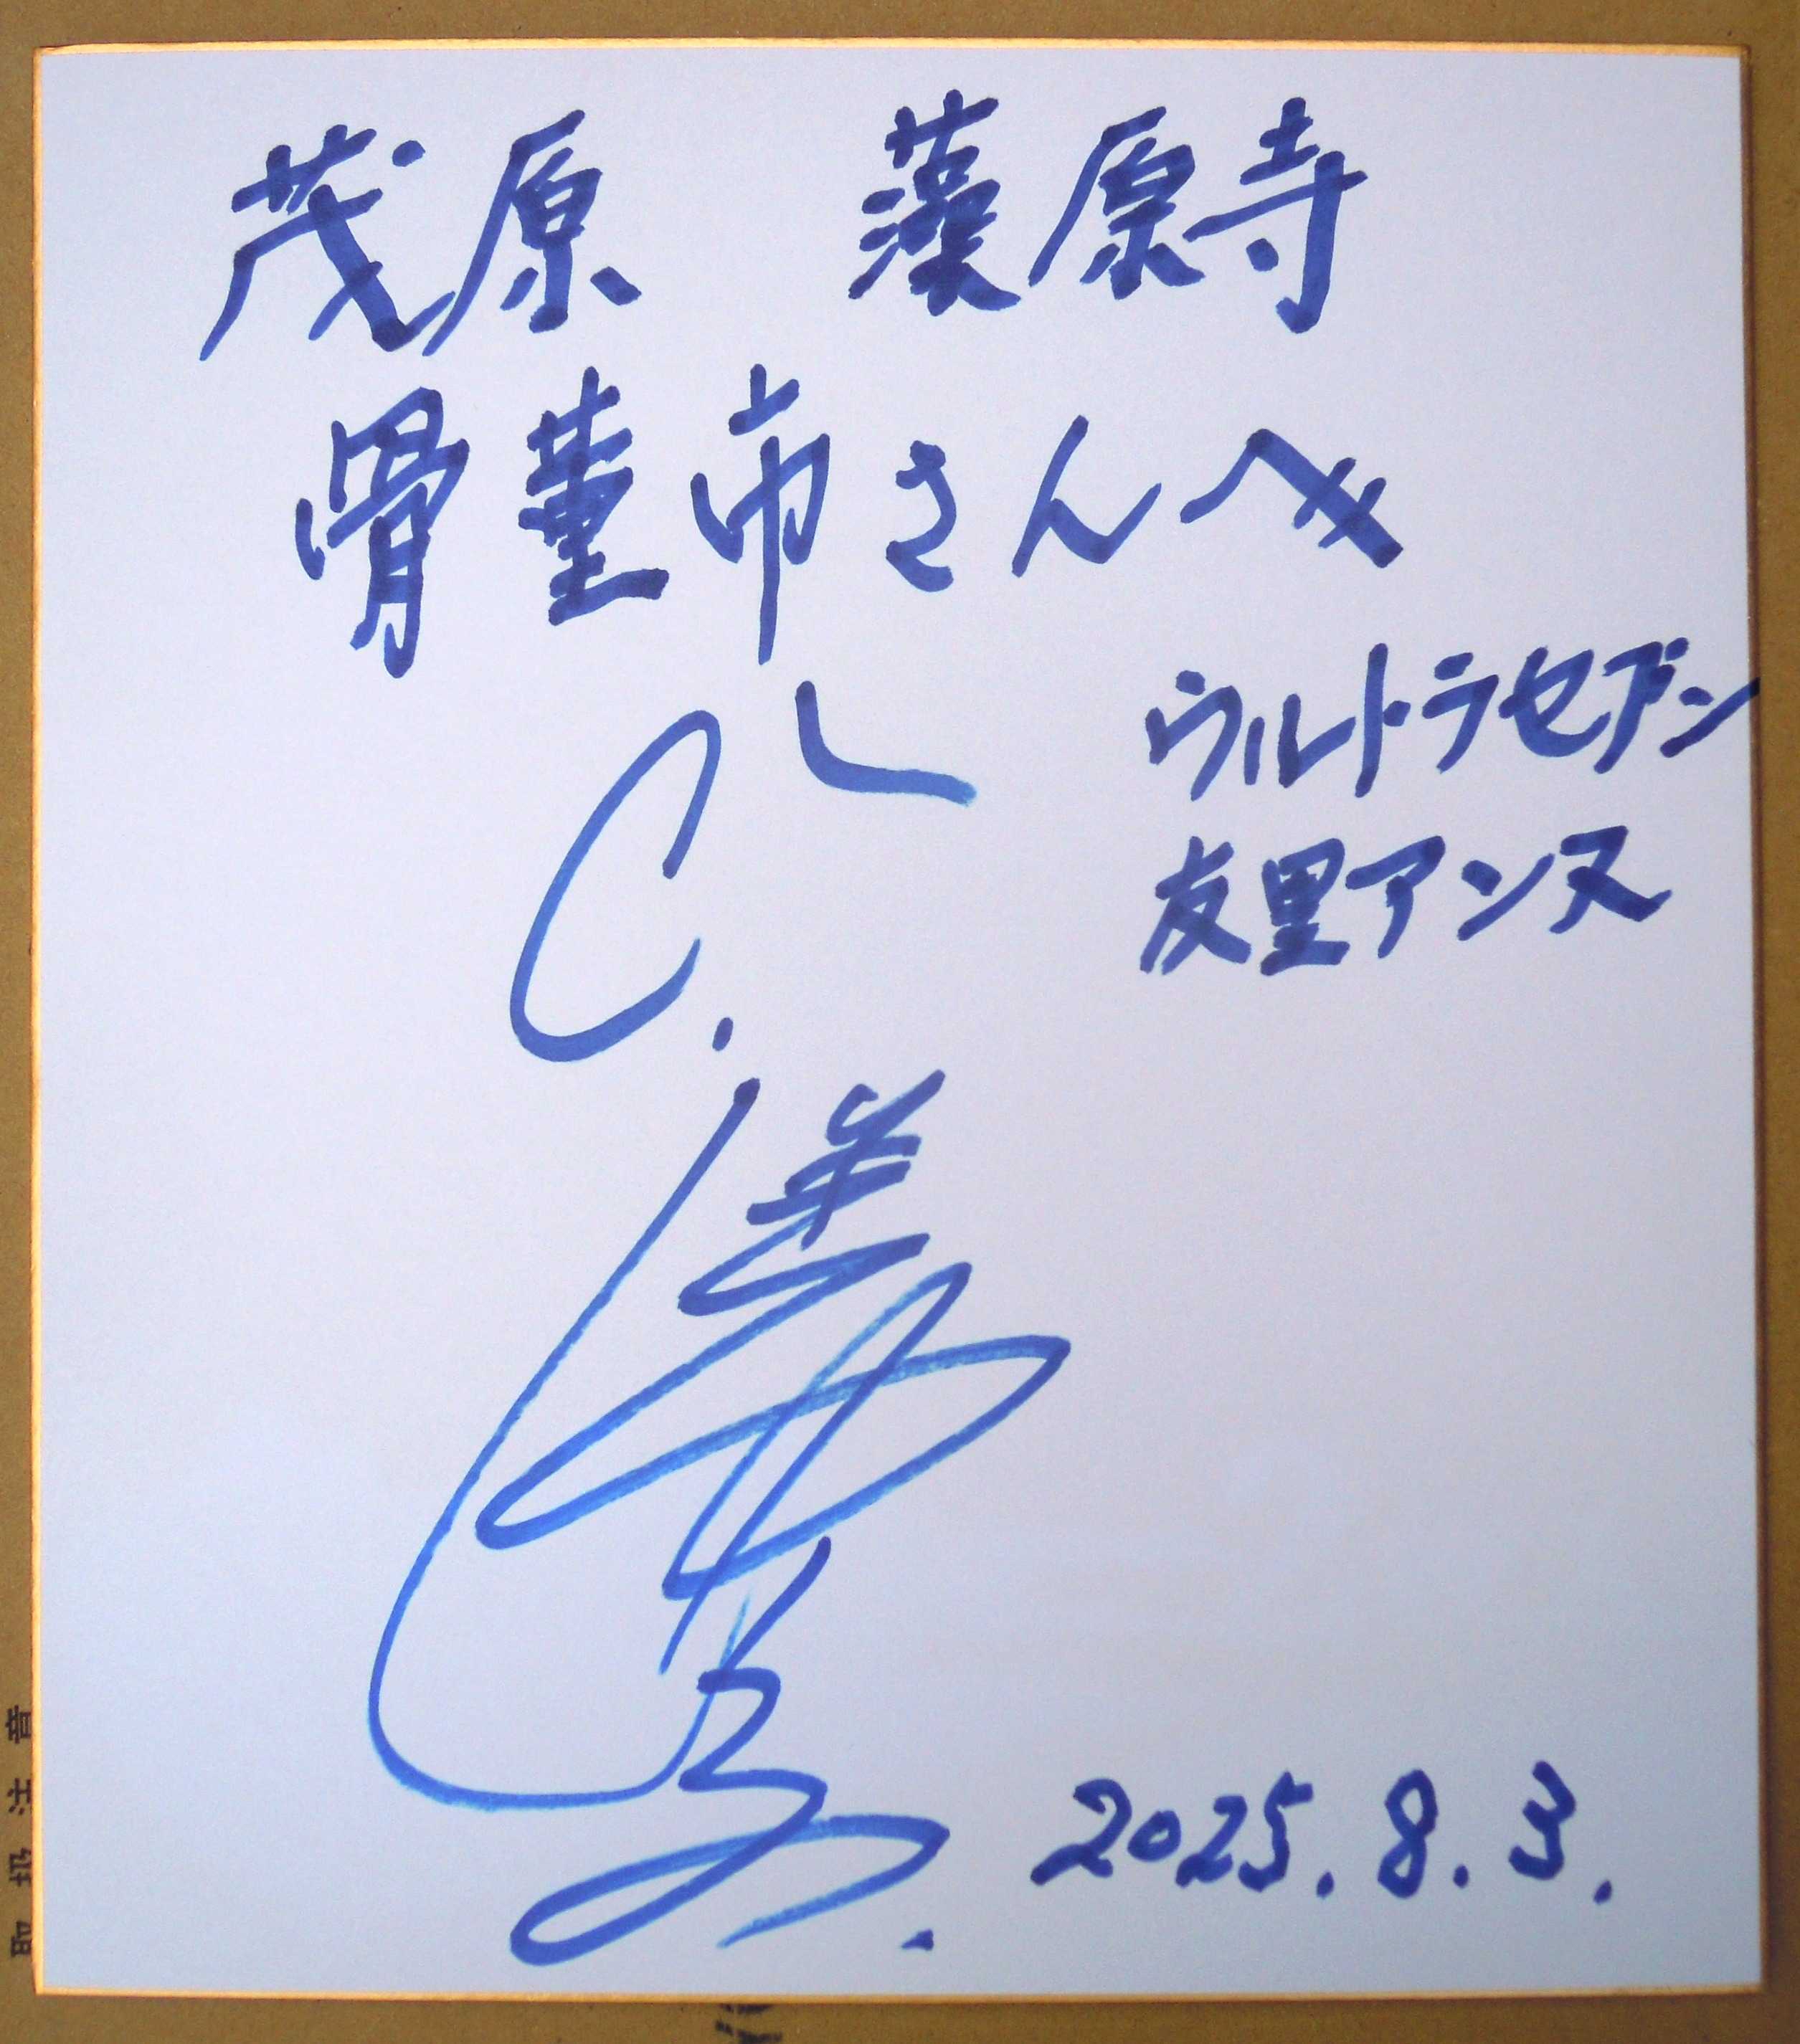 茂原 藻原寺
骨董市さんへ
ウルトラセブン
友里アンヌ
2025.8.3.